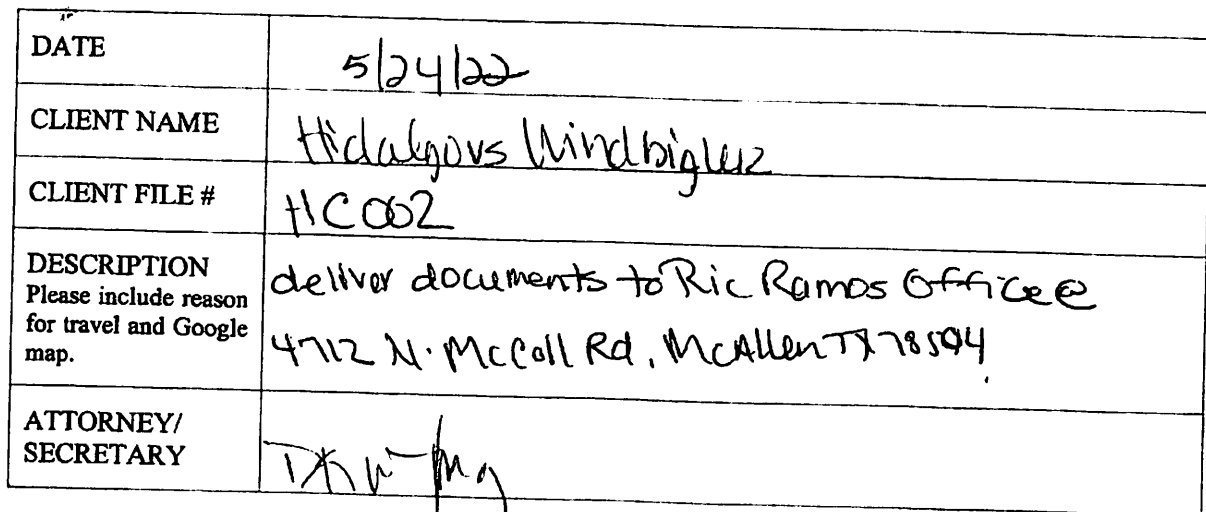 DATE
5/24/22
CLIENT NAME
Hidalgo vs Windbigler
CLIENT FILE #
HC002
DESCRIPTION
Please include reason
for travel and Google
map.
deliver documents to Ric Ramos Office @
4712 N. McColl Rd, McAllen TX 78504
ATTORNEY/
SECRETARY